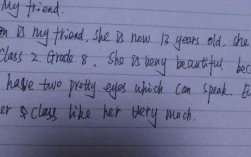 My friend.
is my friend. She is now 13 years old. She
Class 2. Grade 8. She is very beautiful
have two pretty eyes which can speak.
& Class like her very much.